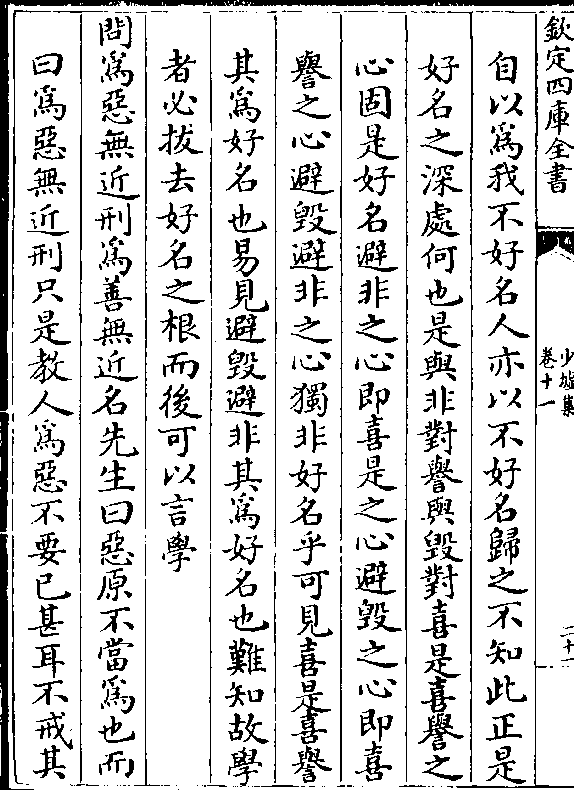 欽定四庫全書
少墟集
卷十一
二十一
自以爲我不好名人亦以不好名歸之不知此正是
好名之深處何也是與非對譽與毁對喜是喜譽之
心固是好名避非之心即喜是之心避毁之心即喜
譽之心避毁避非之心獨非好名乎可見喜是喜譽
其爲好名也易見避毁避非其爲好名也難知故學
者必拔去好名之根而後可以言學
問爲惡無近刑爲善無近名先生曰惡原不當爲也而
曰爲惡無近刑只是教人爲惡不要已甚耳不戒其